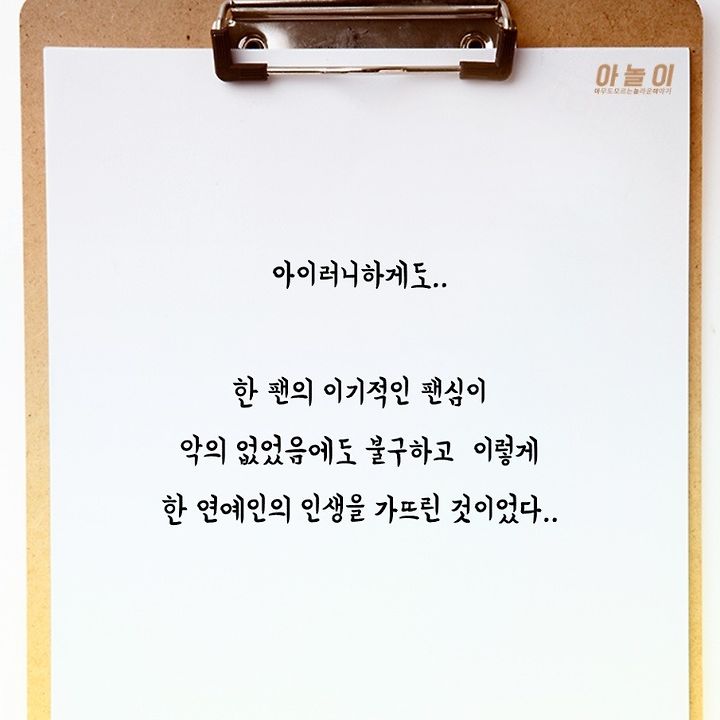 아놀이
아무도모르는놀라운이야기
아이러니하게도..
한 팬의 이기적인 팬심이
악의 없었음에도 불구하고 이렇게
한 연예인의 인생을 가뜨린 것이었다..